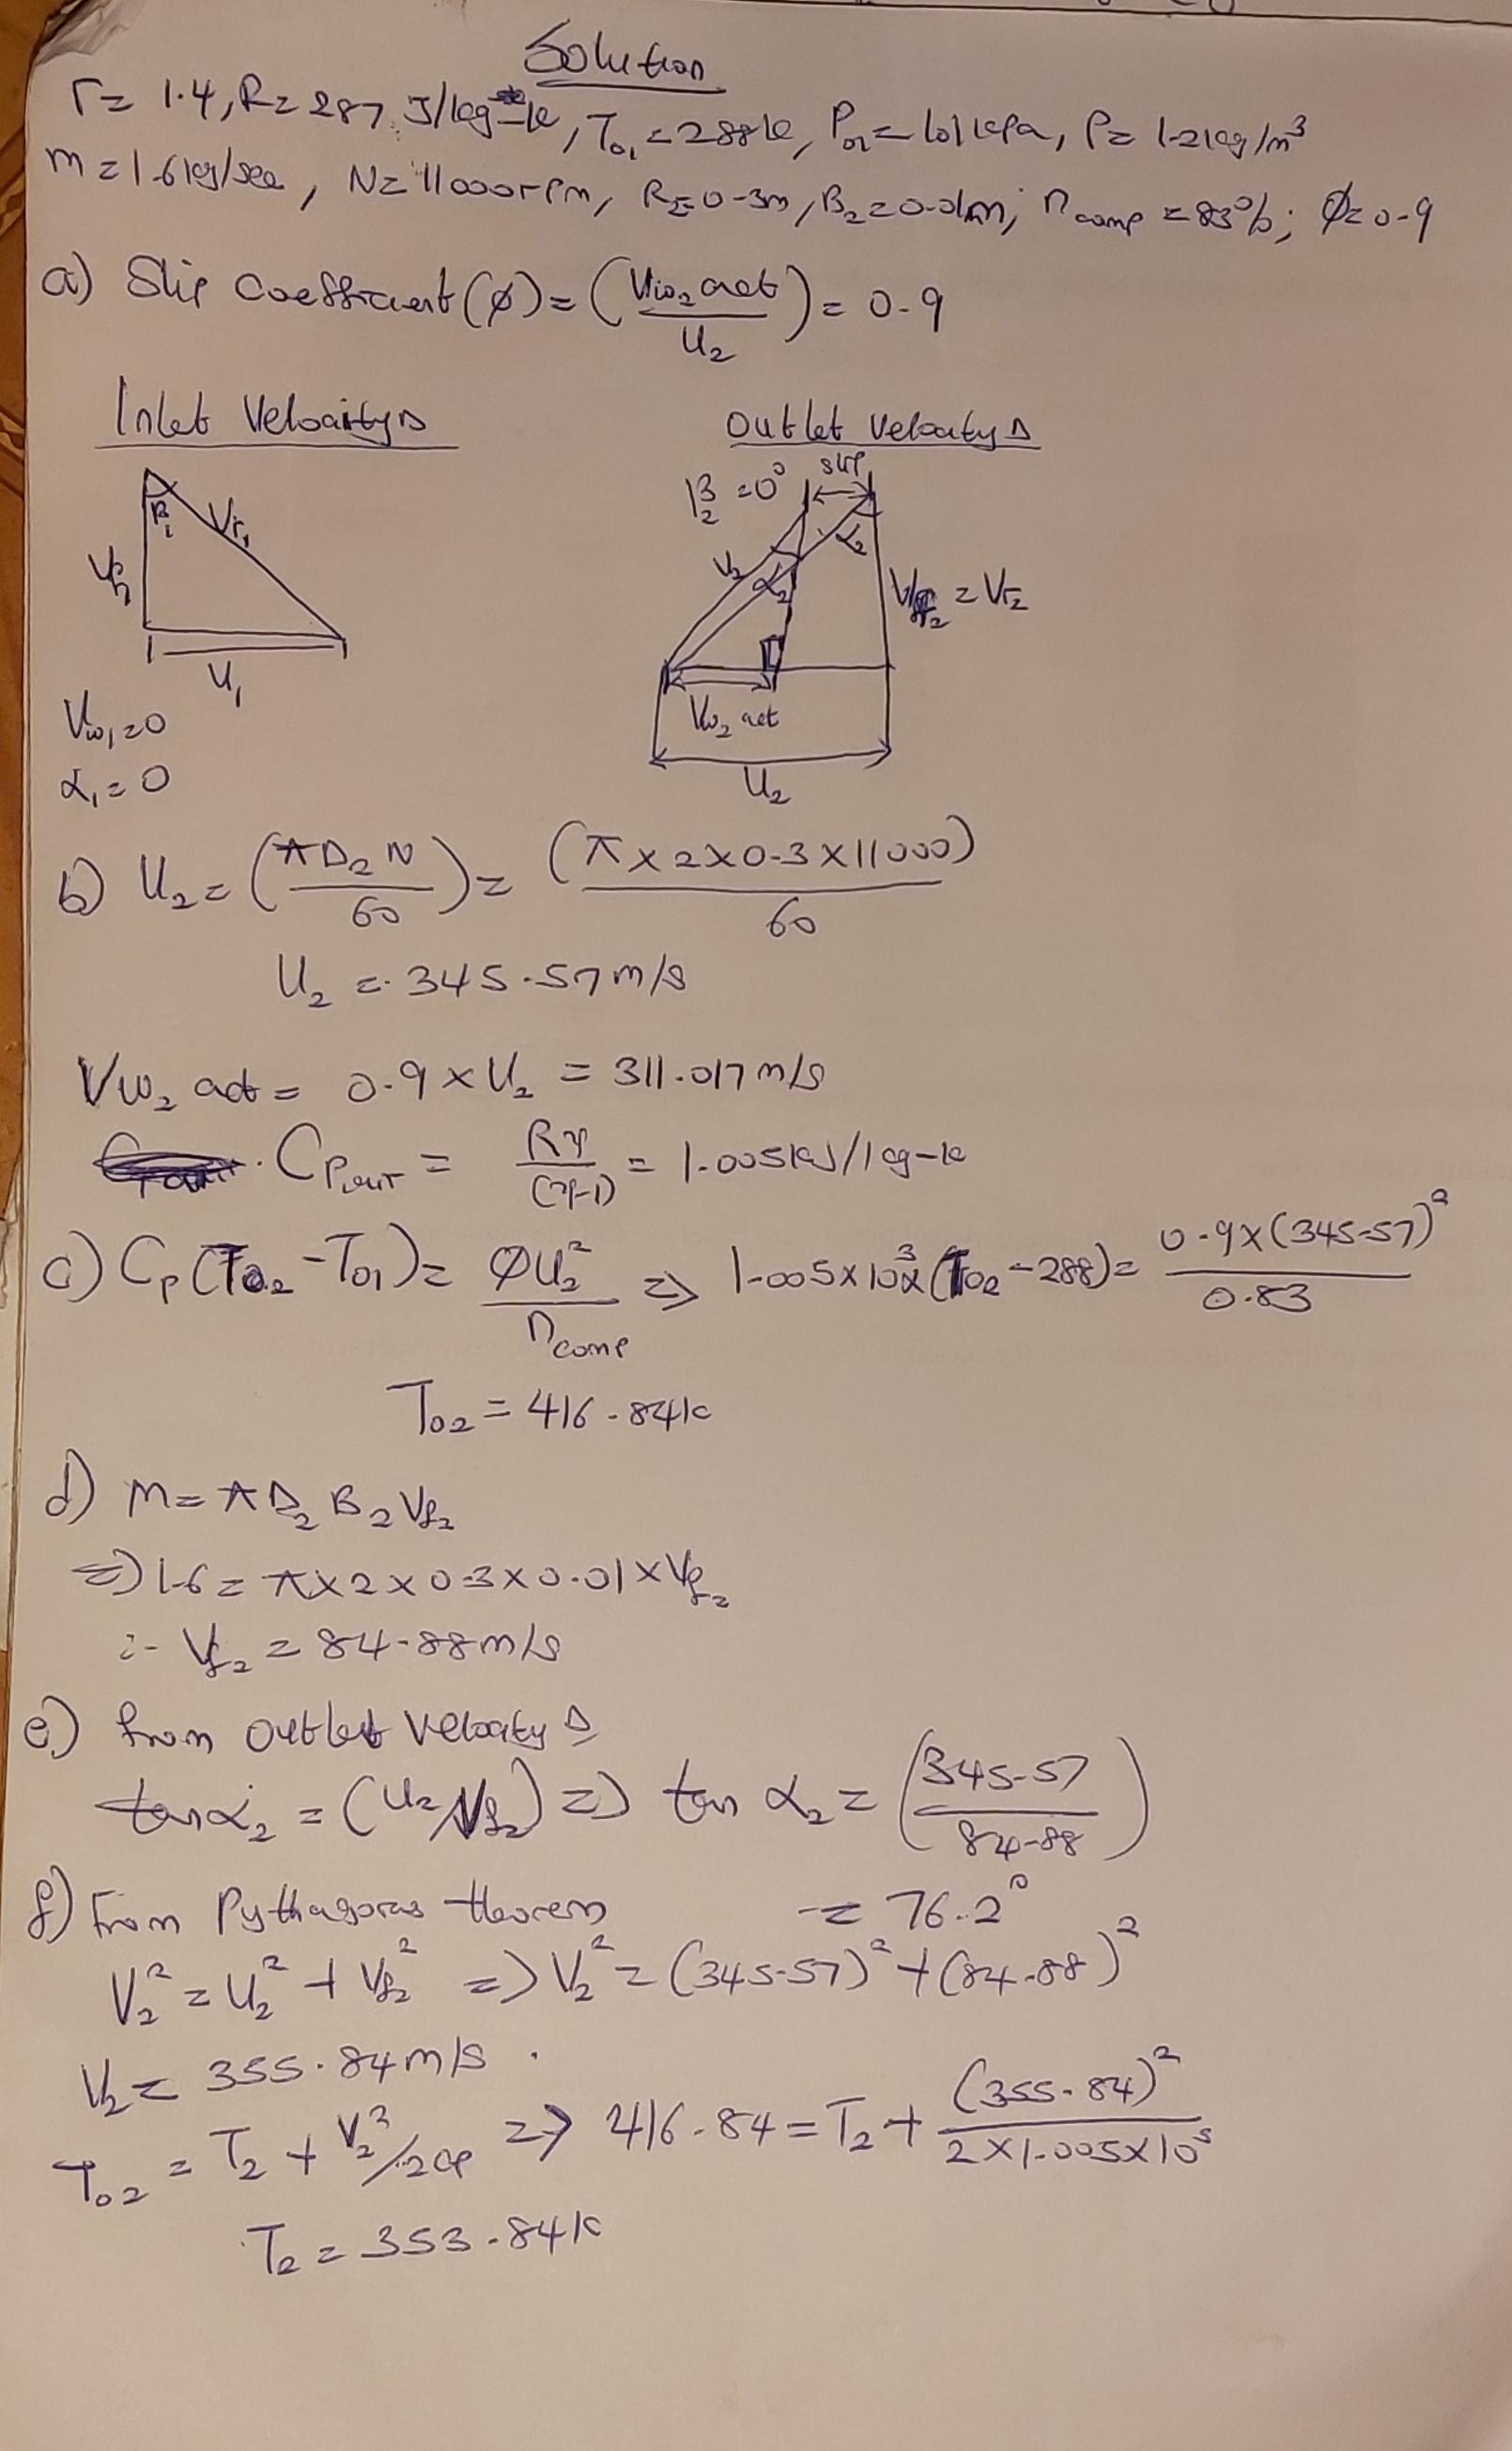 Solution
r = 1.4, R = 287 J/kg-k, T01 = 288k, P01 = 101kpa, ρ = 1.2kg/m³
m = 1.6kg/sec, N = 11000rpm, R2 = 0.3m, B2 = 0.01m; ηcomp = 83%; Ø = 0.9
a) Slip Coefficient (ø) = (Vw2 act / U2) = 0.9
Inlet Velocity Δ
Outlet Velocity Δ
β1
Vr1
Vf1
U1
Vw1 = 0
α1 = 0
β2 = 0°
slip
V2
α2
α2
Vf2 = Vr2
Vw2 act
U2
b) U2 = (πD2N / 60) = (π x 2 x 0.3 x 11000) / 60
U2 = 345.57m/s
Vw2 act = 0.9 x U2 = 311.017m/s
Cpair = Rγ / (γ-1) = 1.005kJ/kg-k
c) Cp(T02 - T01) = ØU2² / ηcomp => 1.005x10³x(T02 - 288) = 0.9x(345.57)² / 0.83
T02 = 416.84k
d) m = πD2 B2 Vf2
=> 1.6 = π x 2 x 0.3 x 0.01 x Vf2
∴ Vf2 = 84.88m/s
e) from outlet velocity Δ
tanα2 = (U2/Vf2) => tan α2 = (345.57 / 84.88)
= 76.2°
f) From Pythagoras theorem
V2² = U2² + Vf2² => V2² = (345.57)² + (84.88)²
V2 = 355.84m/s.
T02 = T2 + V2²/2cp => 416.84 = T2 + (355.84)² / 2x1.005x10³
T2 = 353.84k